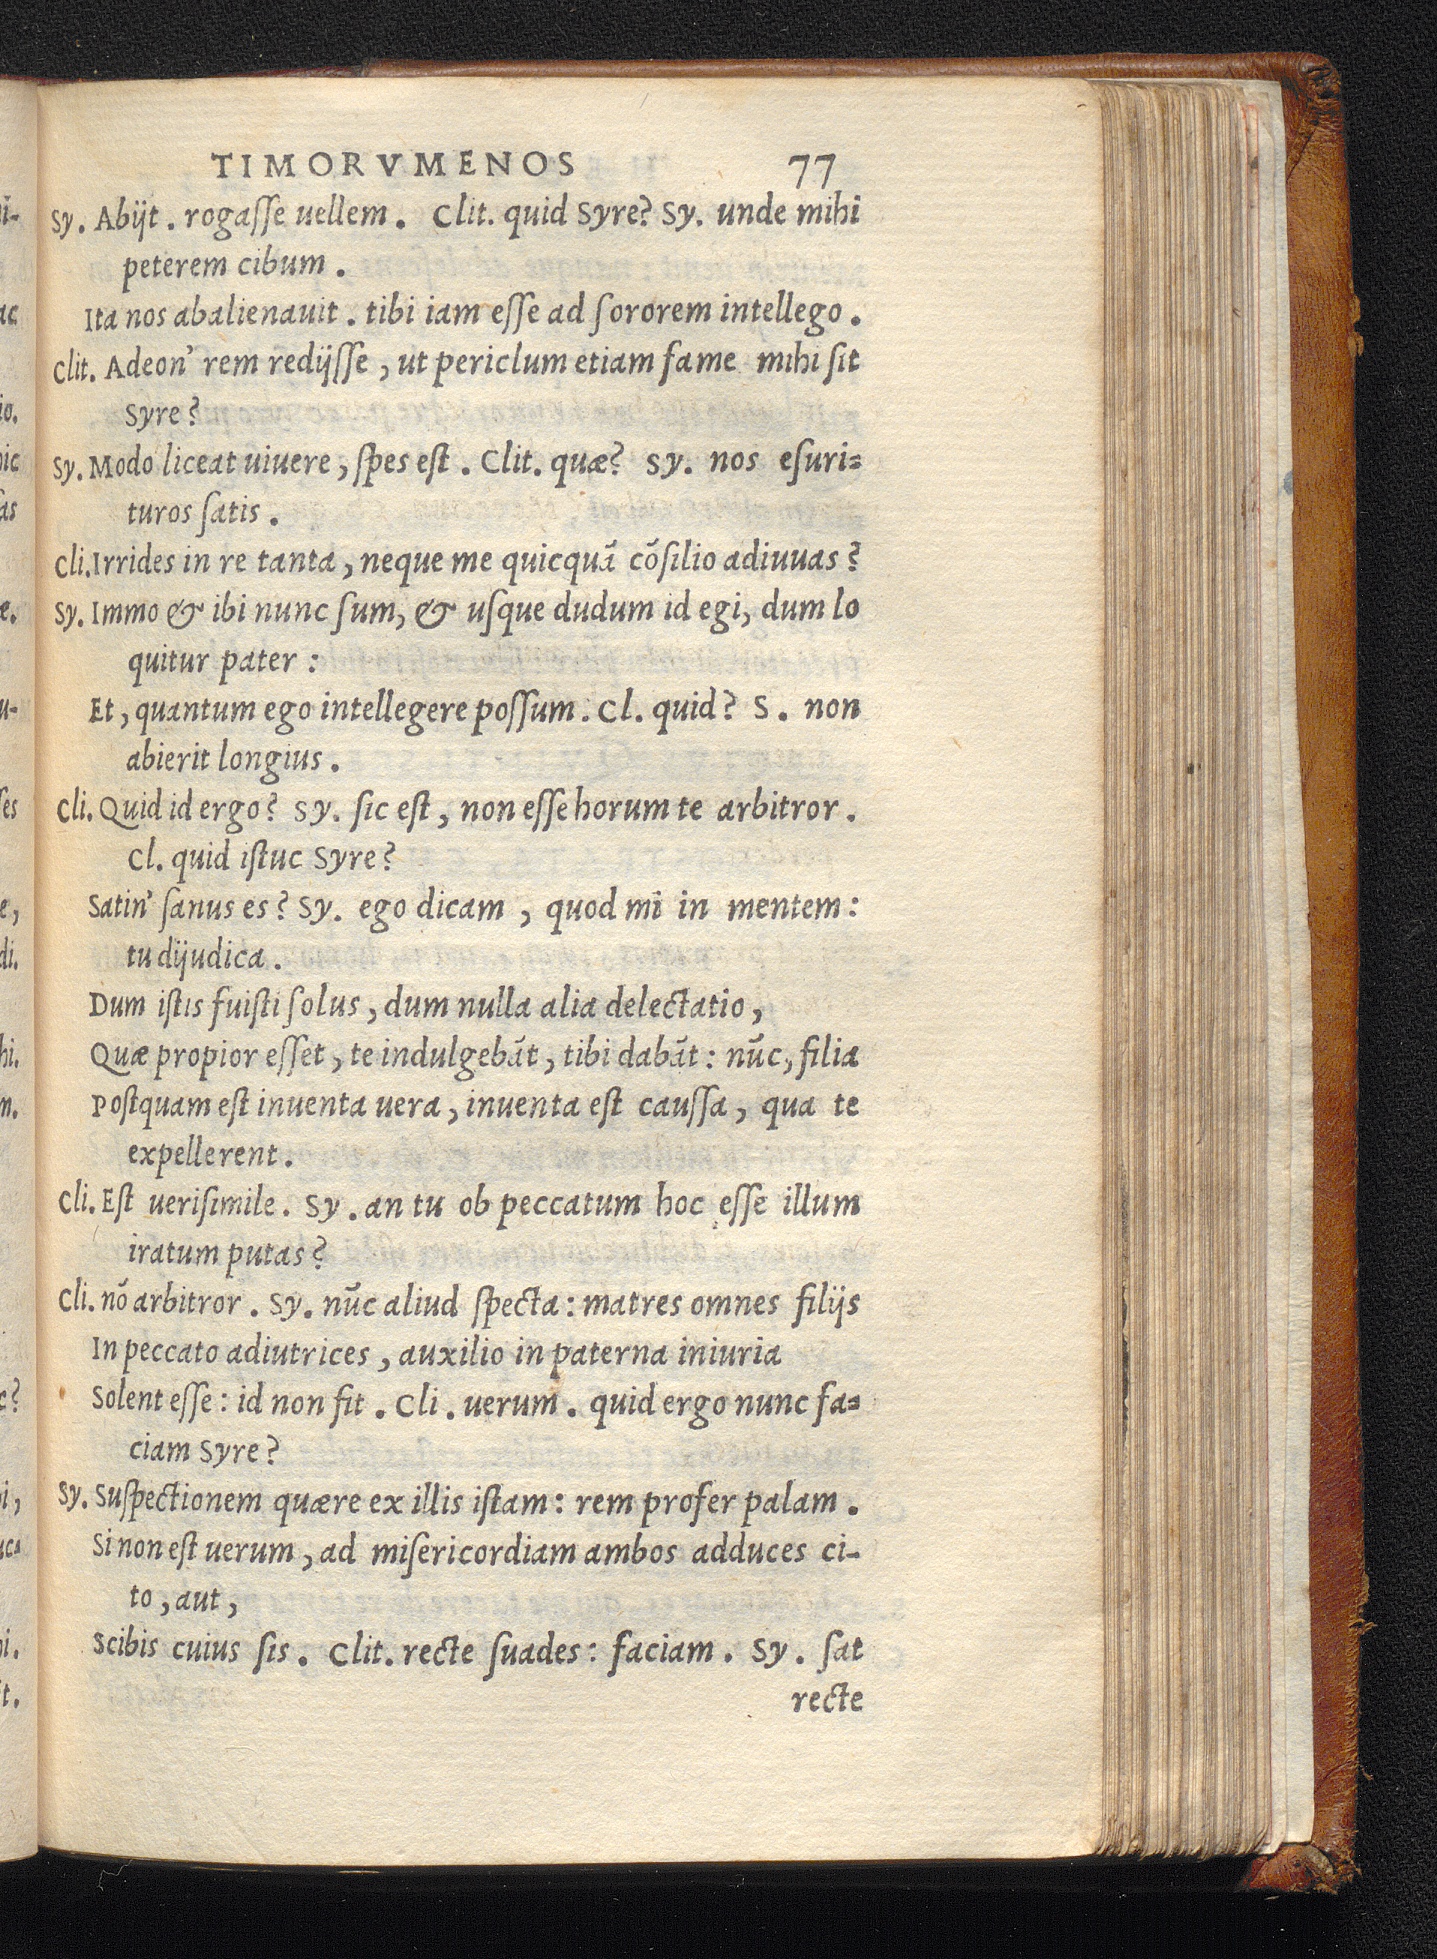 TIMORVMENOS 77
Sy. Abijt. rogaſſe uellem. Clit. quid Syre? Sy. unde mihi
peterem cibum.
Ita nos abalienauit. tibi iam eſſe ad ſororem intellego.
Clit. Adeon' rem redijſſe, ut periclum etiam fame mihi ſit
Syre?
Sy. Modo liceat uiuere, ſpes eſt. Clit. quæ? Sy. nos eſuri=
turos ſatis.
Cli. Irrides in re tanta, neque me quicquā cōſilio adiuuas?
Sy. Immo & ibi nunc ſum, & uſque dudum id egi, dum lo
quitur pater:
Et, quantum ego intellegere poſſum. Cl. quid? S. non
abierit longius.
Cli. Quid id ergo? Sy. ſic eſt, non eſſe horum te arbitror.
Cl. quid iſtuc Syre?
Satin' ſanus es? Sy. ego dicam, quod mi in mentem:
tu dijudica.
Dum iſtis fuiſti ſolus, dum nulla alia delectatio,
Quæ propior eſſet, te indulgebāt, tibi dabāt: nūc, filia
Poſtquam eſt inuenta uera, inuenta eſt cauſſa, qua te
expellerent.
Cli. Eſt ueriſimile. Sy. an tu ob peccatum hoc eſſe illum
iratum putas?
Cli. nō arbitror. Sy. nūc aliud ſpecta: matres omnes filijs
In peccato adiutrices, auxilio in paterna iniuria
Solent eſſe: id non fit. Cli. uerum. quid ergo nunc fa=
ciam Syre?
Sy. Suſpectionem quære ex illis iſtam: rem profer palam.
Si non eſt uerum, ad miſericordiam ambos adduces ci-
to, aut,
Scibis cuius ſis. Clit. recte ſuades: faciam. Sy. ſat
recte